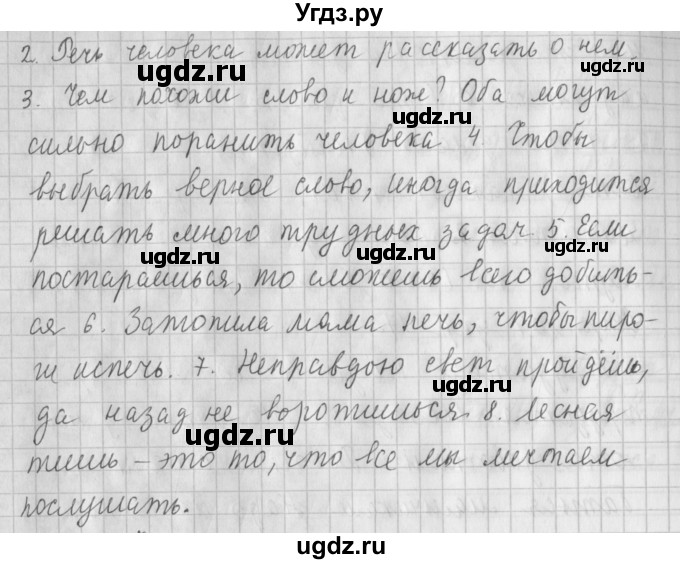 Угдз.ру
2. Речь человека может рассказать о нем.
3. Чем похожи слово и нож? Оба могут
сильно поранить человека 4. Чтобы
выбрать верное слово, иногда приходится
решать много трудных задач 5. Если
постараешься, то сможешь всего добить-
ся 6. Затопила мама печь, чтобы пиро-
ги испечь. 7. Неправдою свет пройдёшь,
да назад не воротишься 8. Лесная
тишь – это то, что все мы мечтаем
послушать.
ugdz.ru
ugdz.ru
ugdz.ru
ugdz.ru
ugdz.ru
ugdz.ru
ugdz.ru
ugdz.ru
ugdz.ru